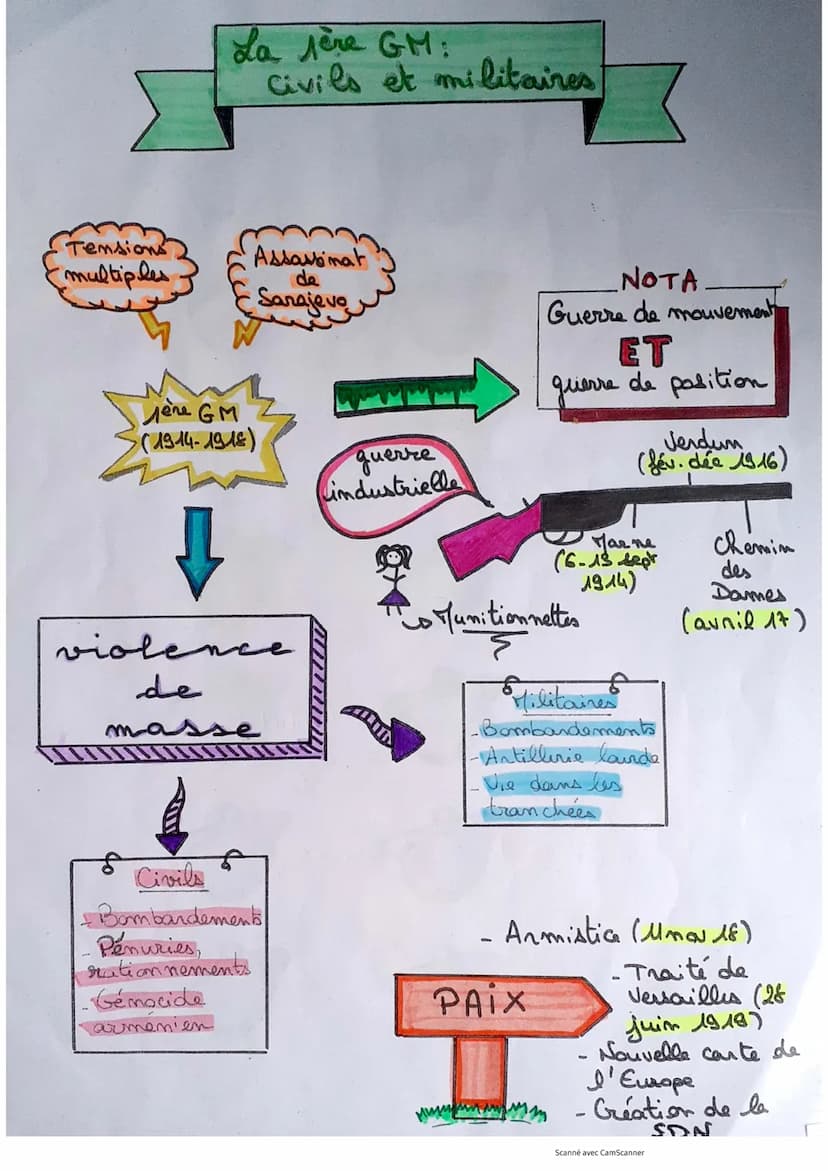 La 1ère GM:
civils et militaires
Tensions
multiples
Assassinat
de
Sarajevo
NOTA
Guerre de mouvement
ET
guerre de position
1ère GM
(1914-1918)
guerre
industrielle
Verdun
(fév. déc 1916)
Marne
(6-13 sept
1914)
Chemin
des
Dames
(avril 17)
Munitionnettes
violence
de
masse
Militaires
- Bombardements
- Artillerie lourde
- Vie dans les
tranchées
Civils
- Bombardements
- Pénuries,
rationnements
- Génocide
arménien
PAIX
- Armistice (11 nov 18)
- Traité de
Versailles (28
juin 1919)
- Nouvelle carte de
l'Europe
- Création de la
SDN
Scanné avec CamScanner